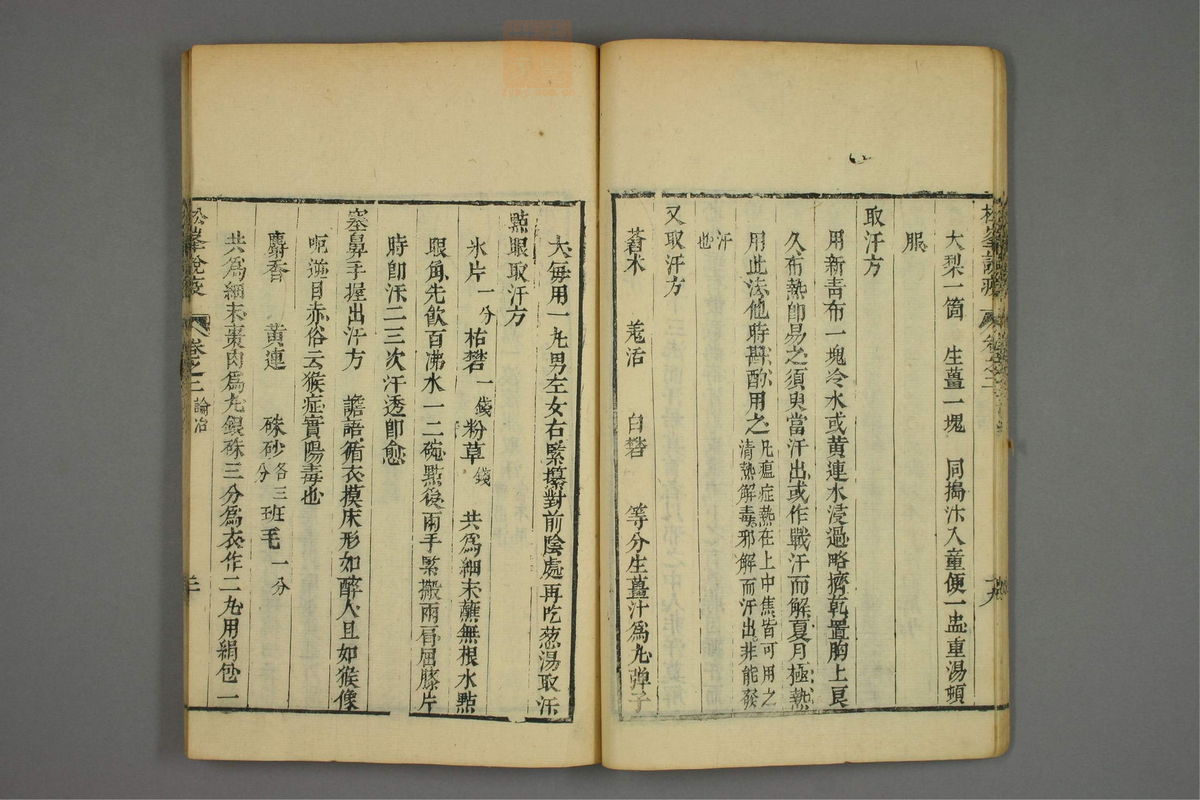 大梨一箇　生薑一塊　同搗汁入童便一盅重湯頓
服
取汗方
用新青布一塊冷水或黄連水浸過略擠乾置胸上良
久布熱即易之須臾當汗出或作戰汗而解夏月極熱
用此法他時斟酌用之凡瘟症熱在上中焦皆可用之清熱解毒邪解而汗出非能發
汗也
又取汗方
蒼术　羗活　白礬　等分生薑汁爲丸彈子
大每用一丸男左女右緊攥對前陰處再吃葱湯取汗
點眼取汗方
氷片一分枯礬一錢粉草一錢　共爲細末蘸無根水點
眼角先飲百沸水一二碗點後兩手緊搬兩肩屈膝片
時即汗二三次汗透即愈
塞鼻手握出汗方　譫語循衣摸床形如醉人且如猴像
呃逆目赤俗云猴症實陽毒也
麝香　黄連　硃砂各三分班毛一分
共爲細末棗肉爲丸銀硃三分爲衣作二丸用絹包一
松峯說疫　卷之二　論治